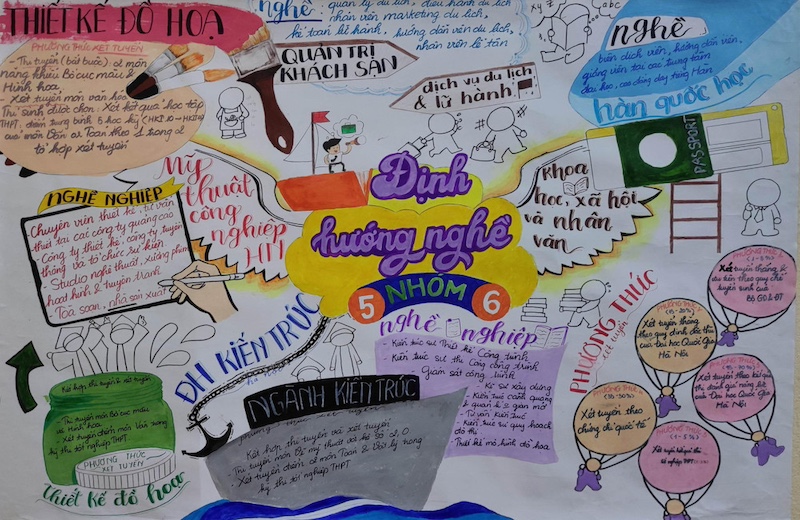 THIẾT KẾ ĐỒ HOẠ
PHƯƠNG THỨC XÉT TUYỂN
- Thi tuyển (bắt buộc) 2 môn
năng khiếu Bố cục màu &
Hình hoạ
- Xét tuyển môn văn hoá
Thí sinh được chọn: Xét kết quả học tập
THPT, điểm trung bình 5 học kỳ
của môn Văn or Toán theo 1 trong 2
tổ hợp xét tuyển
nghề
quản lý du lịch, điều hành du lịch
nhân viên marketing du lịch,
kế toán lữ hành, hướng dẫn viên du lịch,
nhân viên lễ tân
QUẢN TRỊ
KHÁCH SẠN
dịch vụ du lịch
& lữ hành
xyz
abc
nghề
biên dịch viên, hướng dẫn viên,
giảng viên tại các trung tâm
đại học, cao đẳng dạy tiếng Hàn
hàn quốc học
PASSPORT
NGHỀ NGHIỆP
Chuyên viên thiết kế, tư vấn
thiết tại các công ty quảng cáo
- Công ty thiết kế, công ty truyền
thông và tổ chức sự kiện
- Studio nghệ thuật, xưởng phim
hoạt hình & truyện tranh
- Toà soạn, nhà sản xuất
Mỹ
thuật
công
nghiệp
HN
Định
hướng nghề
5 NHÓM 6
khoa
học, xã hội
và nhân
văn
ĐH KIẾN TRÚC
NGÀNH KIẾN TRÚC
Kết hợp thi tuyển và xét tuyển
- Xét tuyển điểm 2 môn Toán & Vật lý trong
kỳ thi tốt nghiệp THPT
nghề nghiệp
- Kiến trúc sư Thiết kế Công trình
- Kiến trúc sư thi công công trình
- Giám sát công trình
- Kĩ sư xây dựng
- Kiến trúc cảnh quan
- Tư vấn kiến trúc
- Kiến trúc sư quy hoạch
đô thị
- Thiết kế mô hình đồ hoạ
PHƯƠNG THỨC
xét tuyển
PHƯƠNG THỨC 1
Xét tuyển thẳng &
ưu tiên theo quy chế
tuyển sinh của
Bộ GD&ĐT
PHƯƠNG THỨC 2
Xét tuyển thẳng
theo quy định đặc thù
của Đại học Quốc Gia
Hà Nội
PHƯƠNG THỨC 3
Xét tuyển theo kết quả
thi đánh giá năng lực
của Đại học Quốc Gia
Hà Nội
Xét tuyển theo
chứng chỉ quốc tế
PHƯƠNG THỨC 5
Xét tuyển kết quả thi
tốt nghiệp THPT
Kết hợp thi tuyển & xét tuyển
- Thi tuyển môn Bố cục màu
và Hình hoạ
- Xét tuyển điểm môn Văn trong
kỳ thi tốt nghiệp THPT
PHƯƠNG THỨC
XÉT TUYỂN
thiết kế đồ hoạ